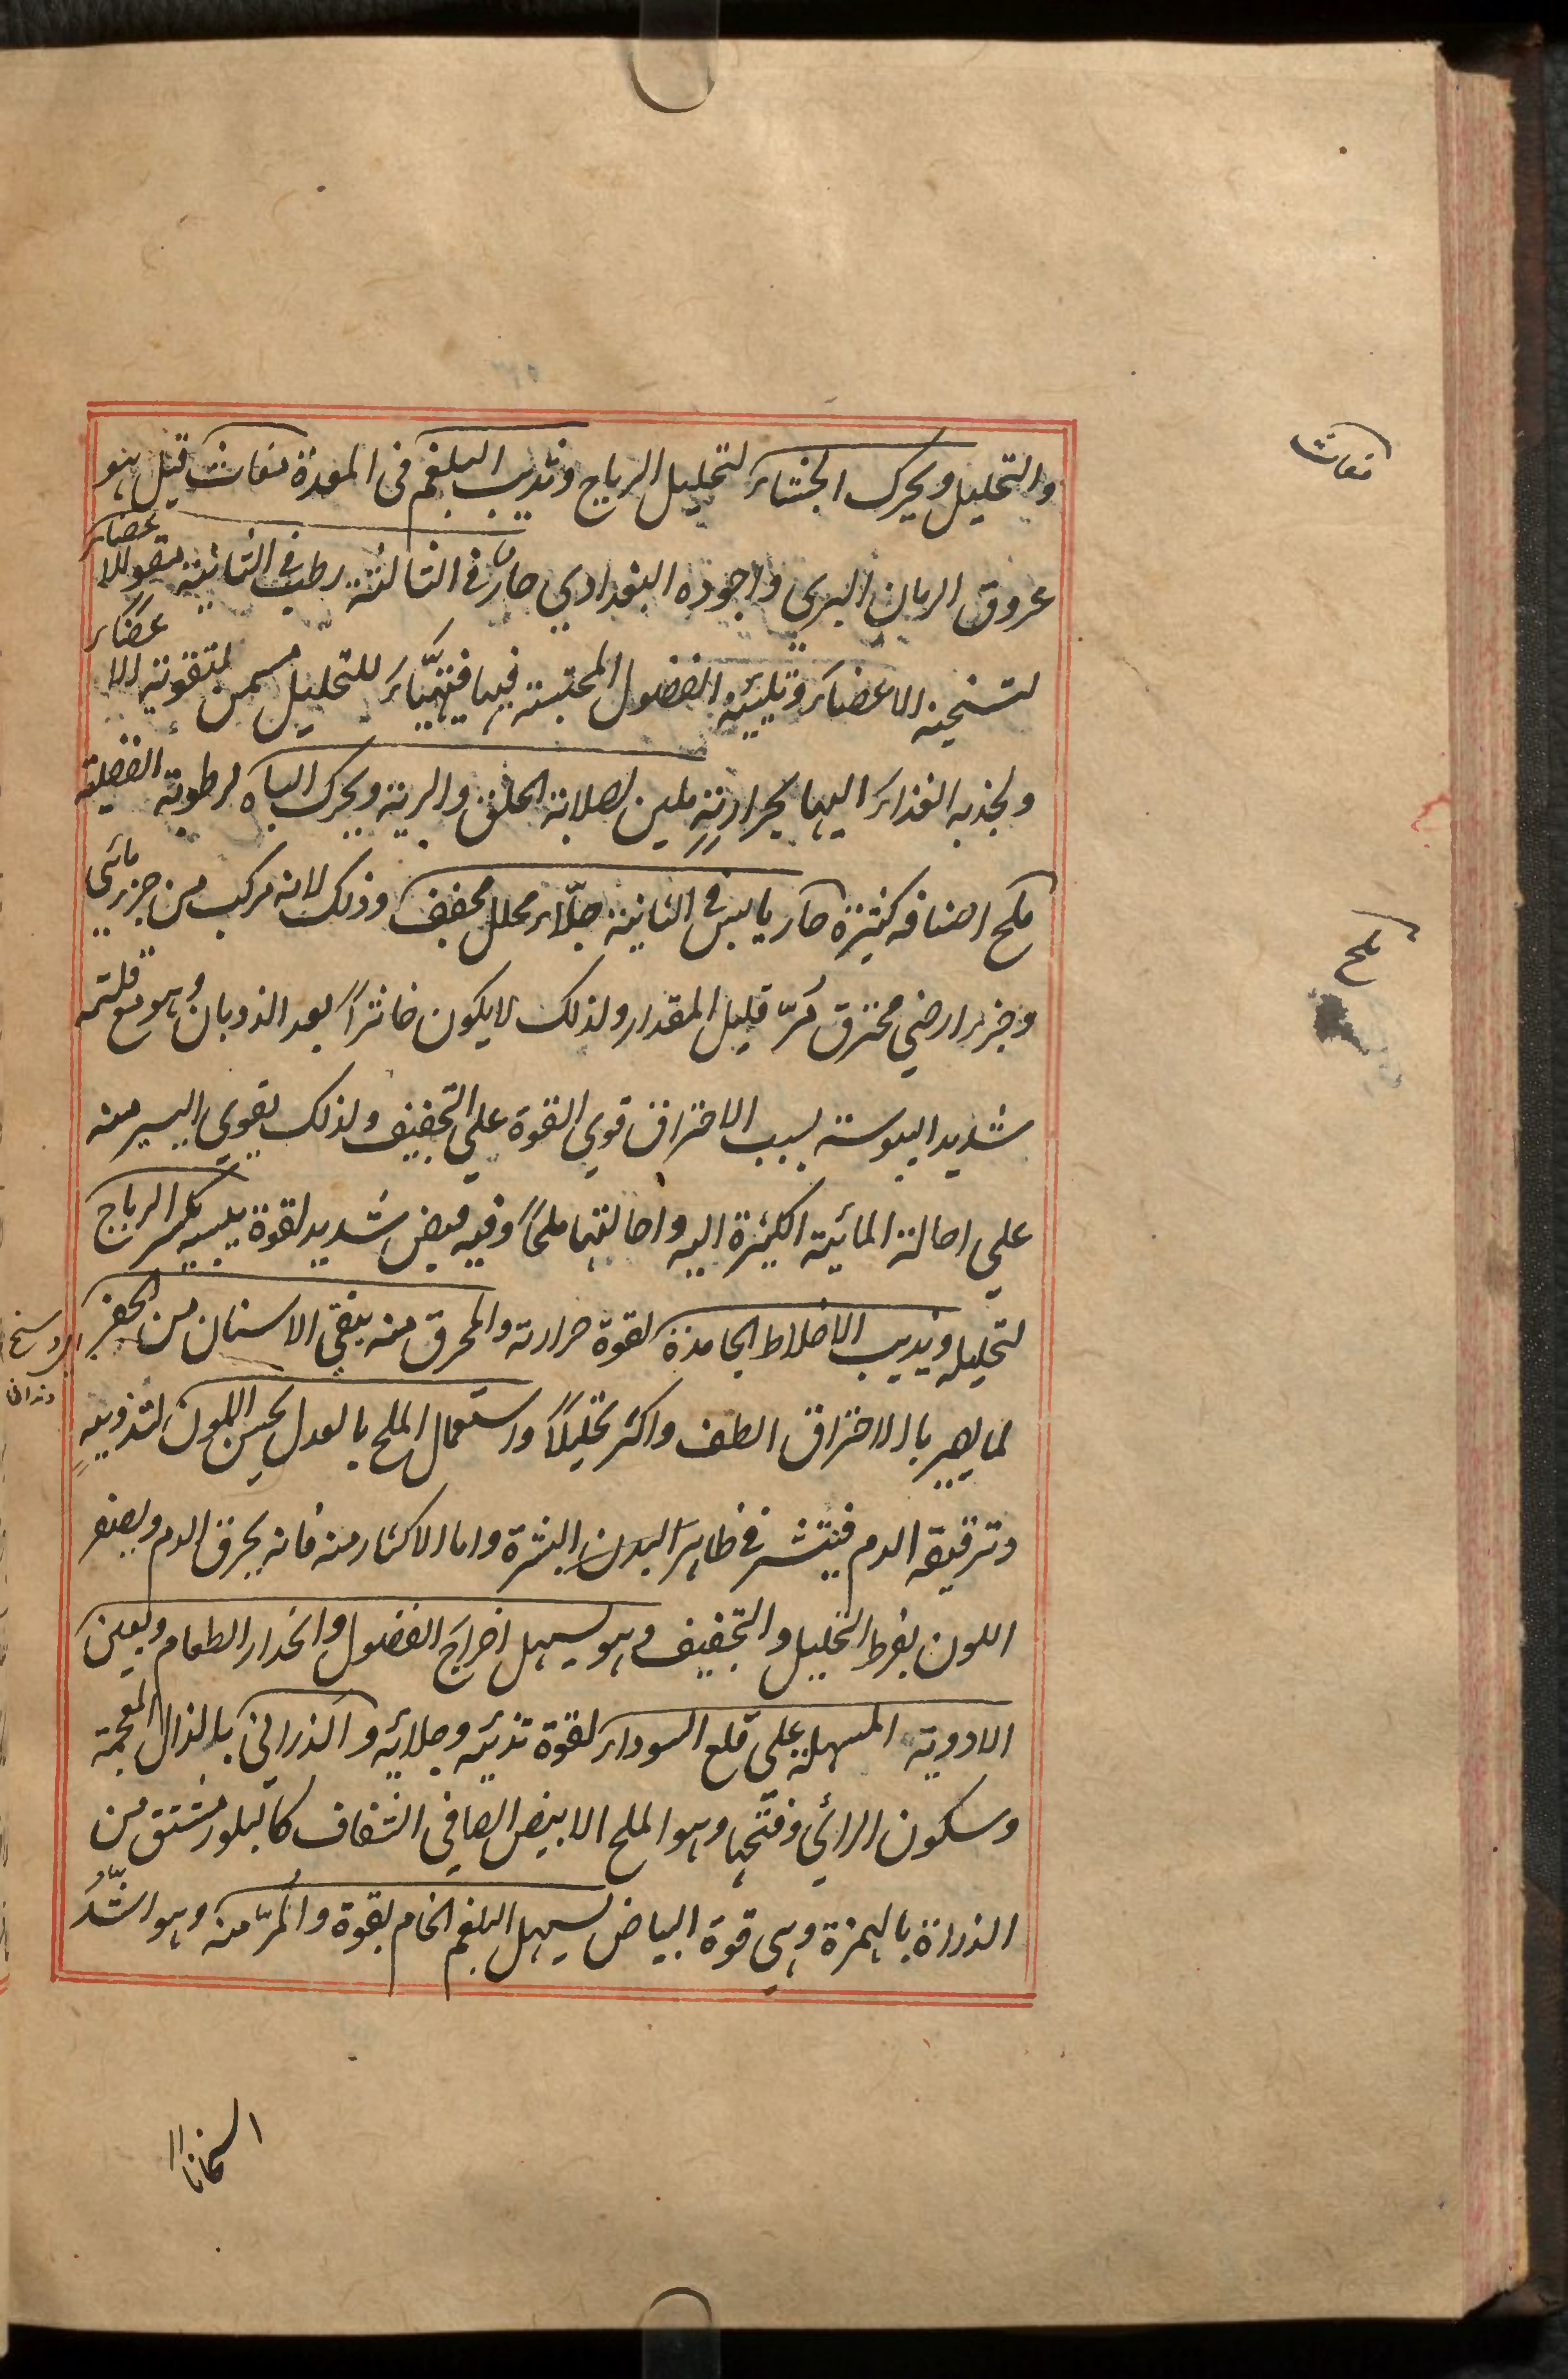 والتحليل ويحرك الجشاء لتحليل الرياح وتذيب البلغم فى المعدة مغاث قيل هو
عروق الرمان البري واجوده البغدادي حار فى الثالثة رطب فى الثانية مقو للاعضاء
لتسخينه الاعضاء وتليينه الفضول المحتبسة فيها فتتهيّاء للتحليل مسمن لتقويته الاعضاء
ولجذبه الغذاء اليها بحرارتهِ ملين لصلابة الحلق والرية ويحرك الباه لرطوبته الفضلية
ملح اصنافه كثيرة حار يابس فى الثانية جلّاء محلل مجفف وذلك لانه مركب من جزء مائي
وجزء ارضي محترق مُرّ قليل المقدار ولذلك لا يكون خاثراً بعد الذوبان وهو مع قلته
شديد اليبوسة بسبب الاحتراق قوي القوة علي التجفيف ولذلك يقوي اليسير منه
علي احالة المائية الكثيرة اليه واحالتها ملحاً وفيه قبض شديد لقوة يبسه يكسر الرياح
لتحليله ويذيب الاخلاط الجامدة لقوة حرارته والمحرق منه ينقي الاسنان من الحفر
لما يصير بالاحتراق الطف واكثر تحليلاً واستعمال الملح بالعدل يحسن اللون لتذويبهِ
وترقيقه الدم فينتشر فى ظاهر البدن البشرة واما الاكثار منه فانه يحرق الدم ويصفر
اللون بفرط التحليل والتجفيف وهو يسهل اخراج الفضول وانحدار الطعام ويعين
الادوية المسهلة علي قلع السوداء لقوة تذيئه وجلائه والذراني بالذال المعجمة
وسكون الرائي وفتحها وهو الملح الابيض الصافي الشفاف كالبلور مشتق من
الذراءة بالهمزة وهى قوة البياض يسهل البلغم الخام بقوة والمُرّ منه وهو اشدُّ
مغاث
ملح